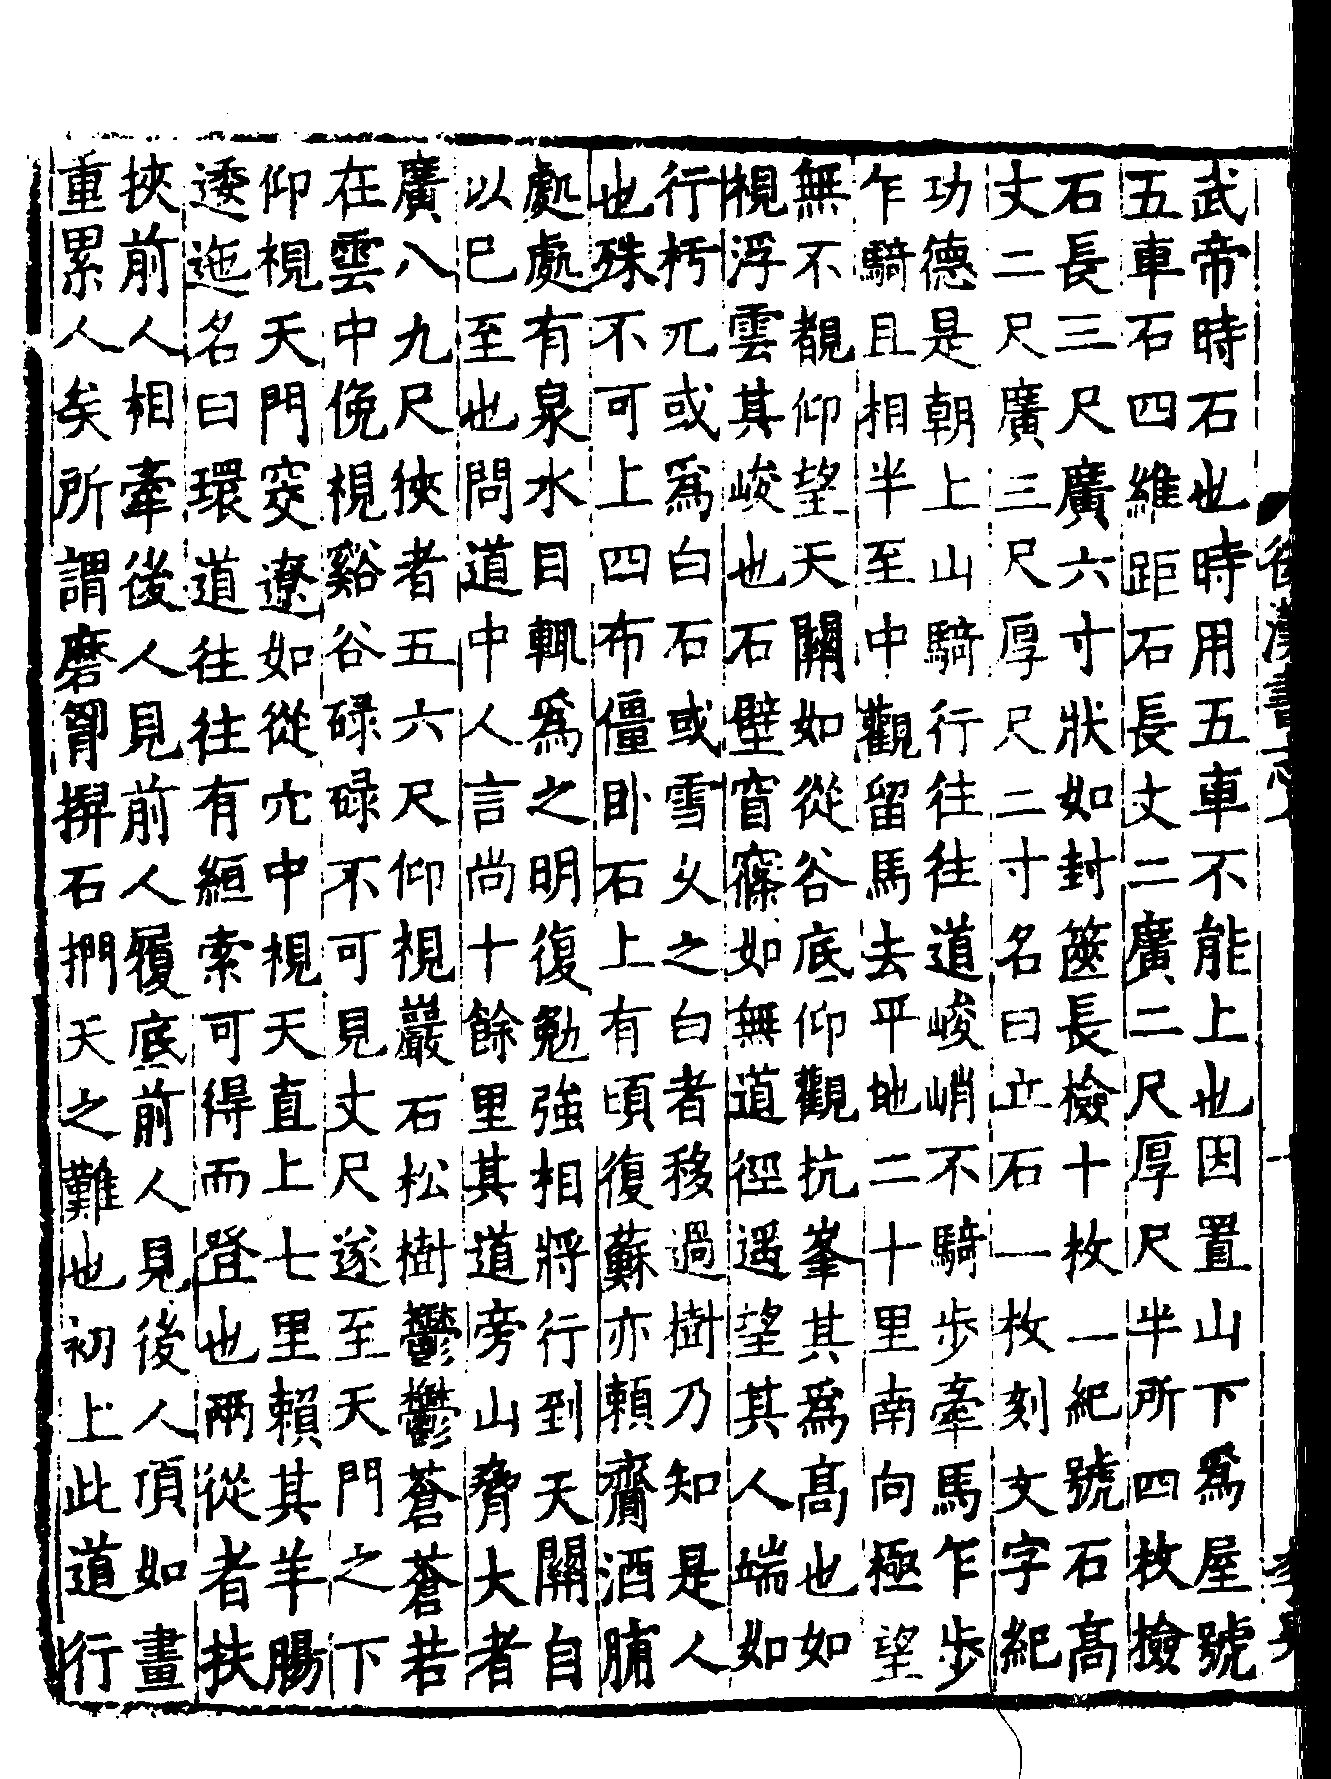 武帝時石也時用五車不能上也因置山下爲屋號
五車石四維距石長丈二廣二尺厚尺半所四枚撿
石長三尺廣六寸狀如封篋長檢十枚一紀號石高
丈二尺廣三尺厚尺二寸名曰立石一枚刻文字紀
功德是朝上山騎行往往道峻峭不騎步牽馬乍步
乍騎且相半至中觀留馬去平地二十里南向極望
無不覩仰望天關如從谷底仰觀抗峯其爲高也如
視浮雲其峻也石壁窅窱如無道徑遥望其人端如
行朽兀或爲白石或雪久之白者移過樹乃知是人
也殊不可上四布僵卧石上有頃復蘇亦頼齎酒脯
處處有泉水目輒爲之明復勉強相將行到天關自
以已至也問道中人言尚十餘里其道旁山脅大者
廣八九尺狹者五六尺仰視巖石松樹鬱鬱蒼蒼若
在雲中俛視谿谷碌碌不可見丈尺遂至天門之下
仰視天門窔遼如從穴中視天直上七里頼其羊腸
逶迤名曰環道往往有絙索可得而登也兩從者扶
挾前人相牽後人見前人履底前人見後人頂如畫
重累人矣所謂磨胷石捫天之難也初上此道行
後漢書志